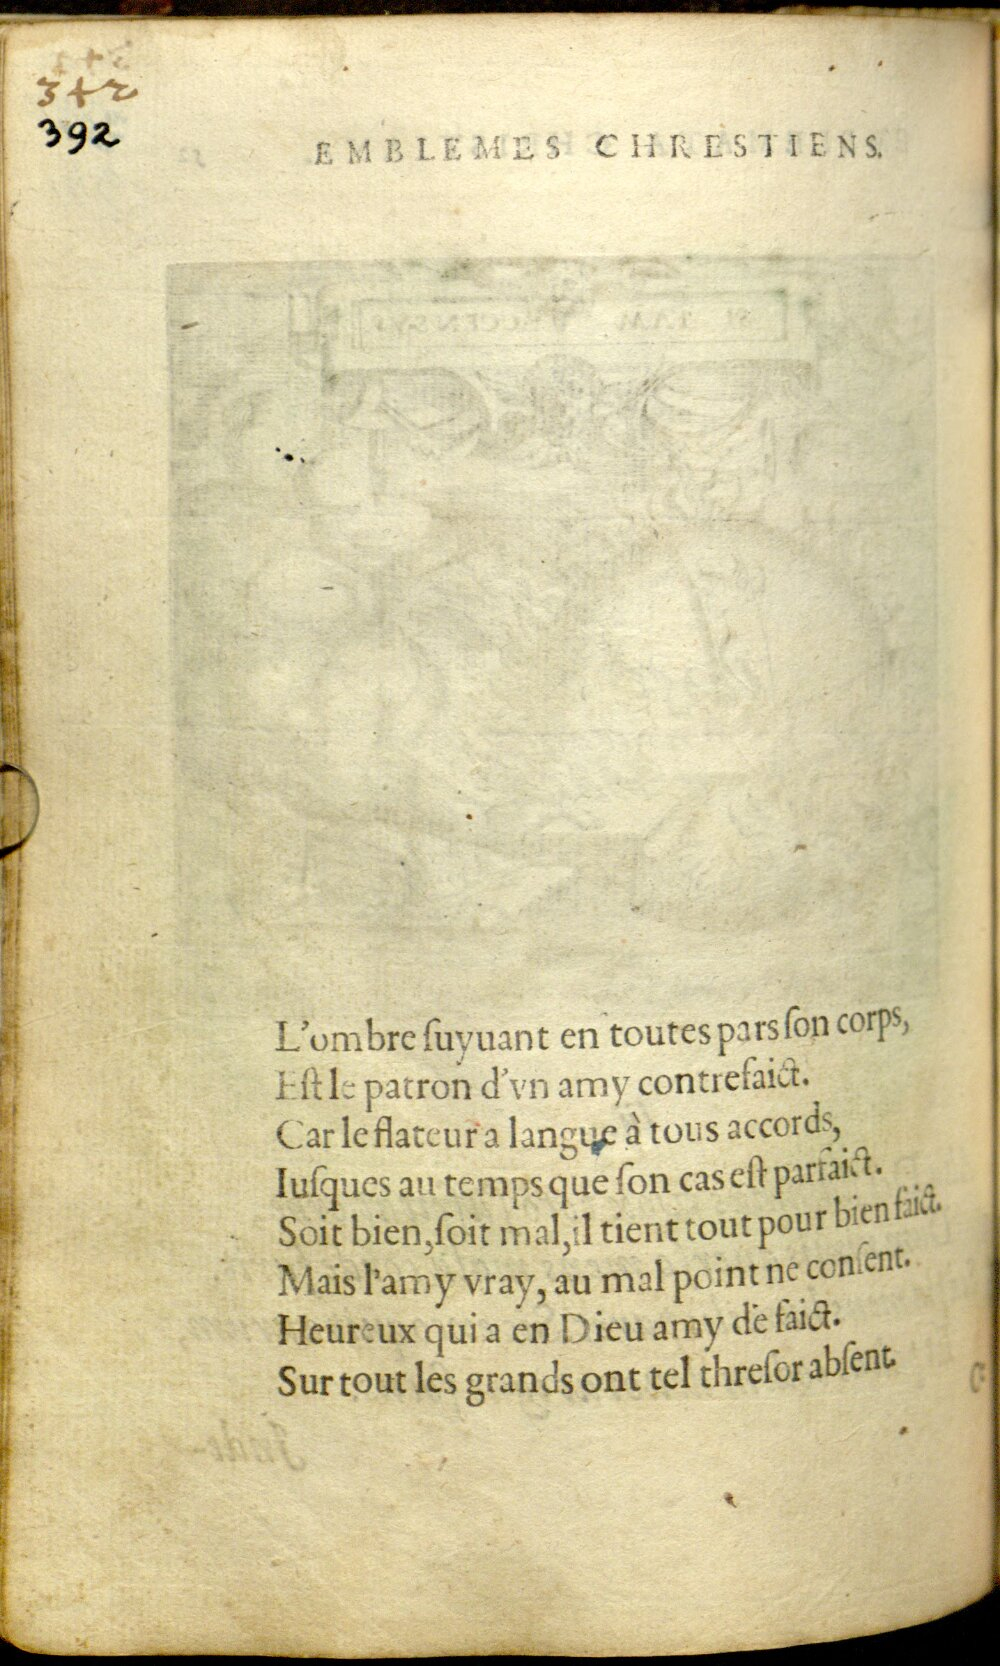 3+2
392
EMBLEMES CHRESTIENS.
L'ombre ſuyuant en toutes pars ſon corps,
Eſt le patron d'vn amy contrefaict.
Car le flateur a langue à tous accords,
Iuſques au temps que ſon cas eſt parfaict.
Soit bien, ſoit mal, il tient tout pour bien faict.
Mais l'amy vray, au mal point ne conſent.
Heureux qui a en Dieu amy de faict.
Sur tout les grands ont tel threſor abſent.